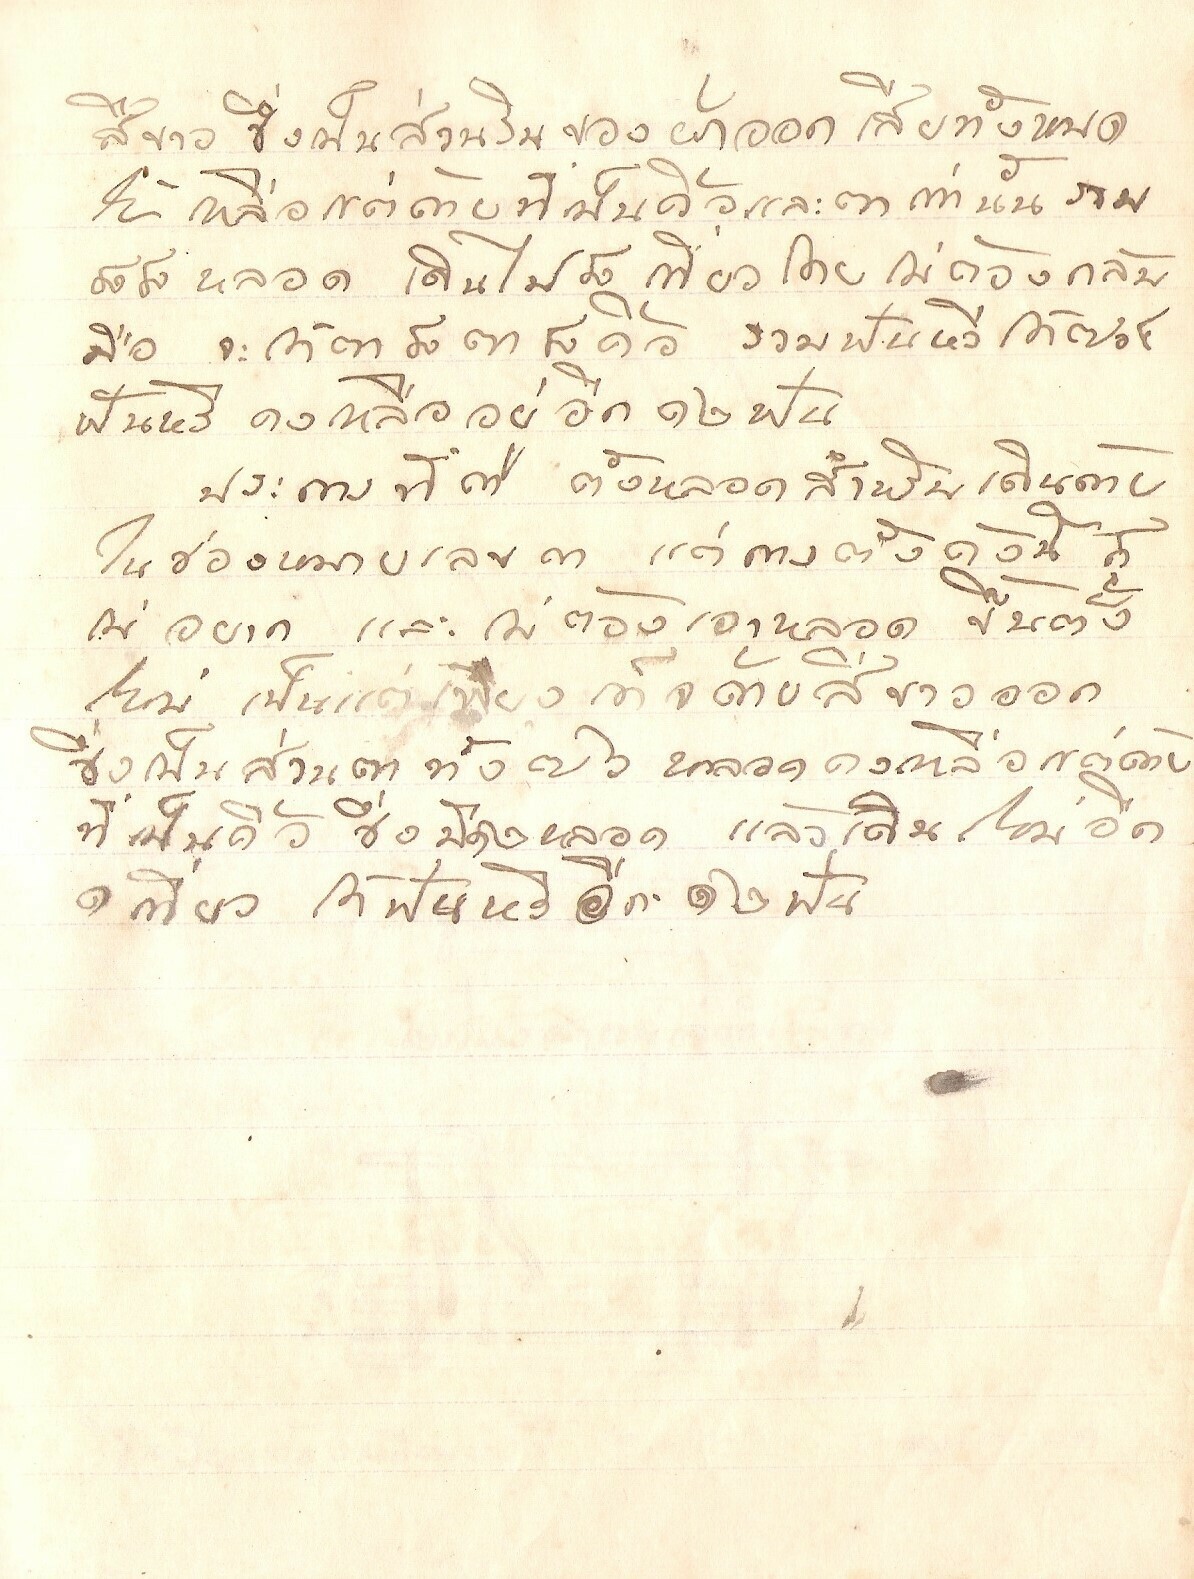 สีขาว ซึ่งเป็นส่วนริมของผ้าออกเสียทั้งหมด
ให้เหลือแต่ด้ายที่เป็นคิ้วและตาเท่านั้น รวม
หลอด เดินไป เที่ยว ไม่ต้องกลับ
มือ จะได้ตา ตา คิ้ว รวมฟันหวี ได้
ฟันหวี คงเหลืออยู่อีก ๑๒ ฟัน
ประการที่ ๓ ตั้งหลอดสำหรับเดินด้าย
ในช่องหมายเลข ๓ แต่การตั้งครั้งนี้ ก็
ไม่อยาก และไม่ต้องเอาหลอด ขึ้นตั้ง
ใหม่ เป็นแต่เพียง เด็จด้ายสีขาวออก
ซึ่งเป็นส่วนตา ทั้ง หลอด คงเหลือแต่ด้าย
ที่เป็นคิ้ว ซึ่งมี หลอด แล้วเดินใหม่อีก
๑ เที่ยว ได้ฟันหวี อีก ๑๒ ฟัน